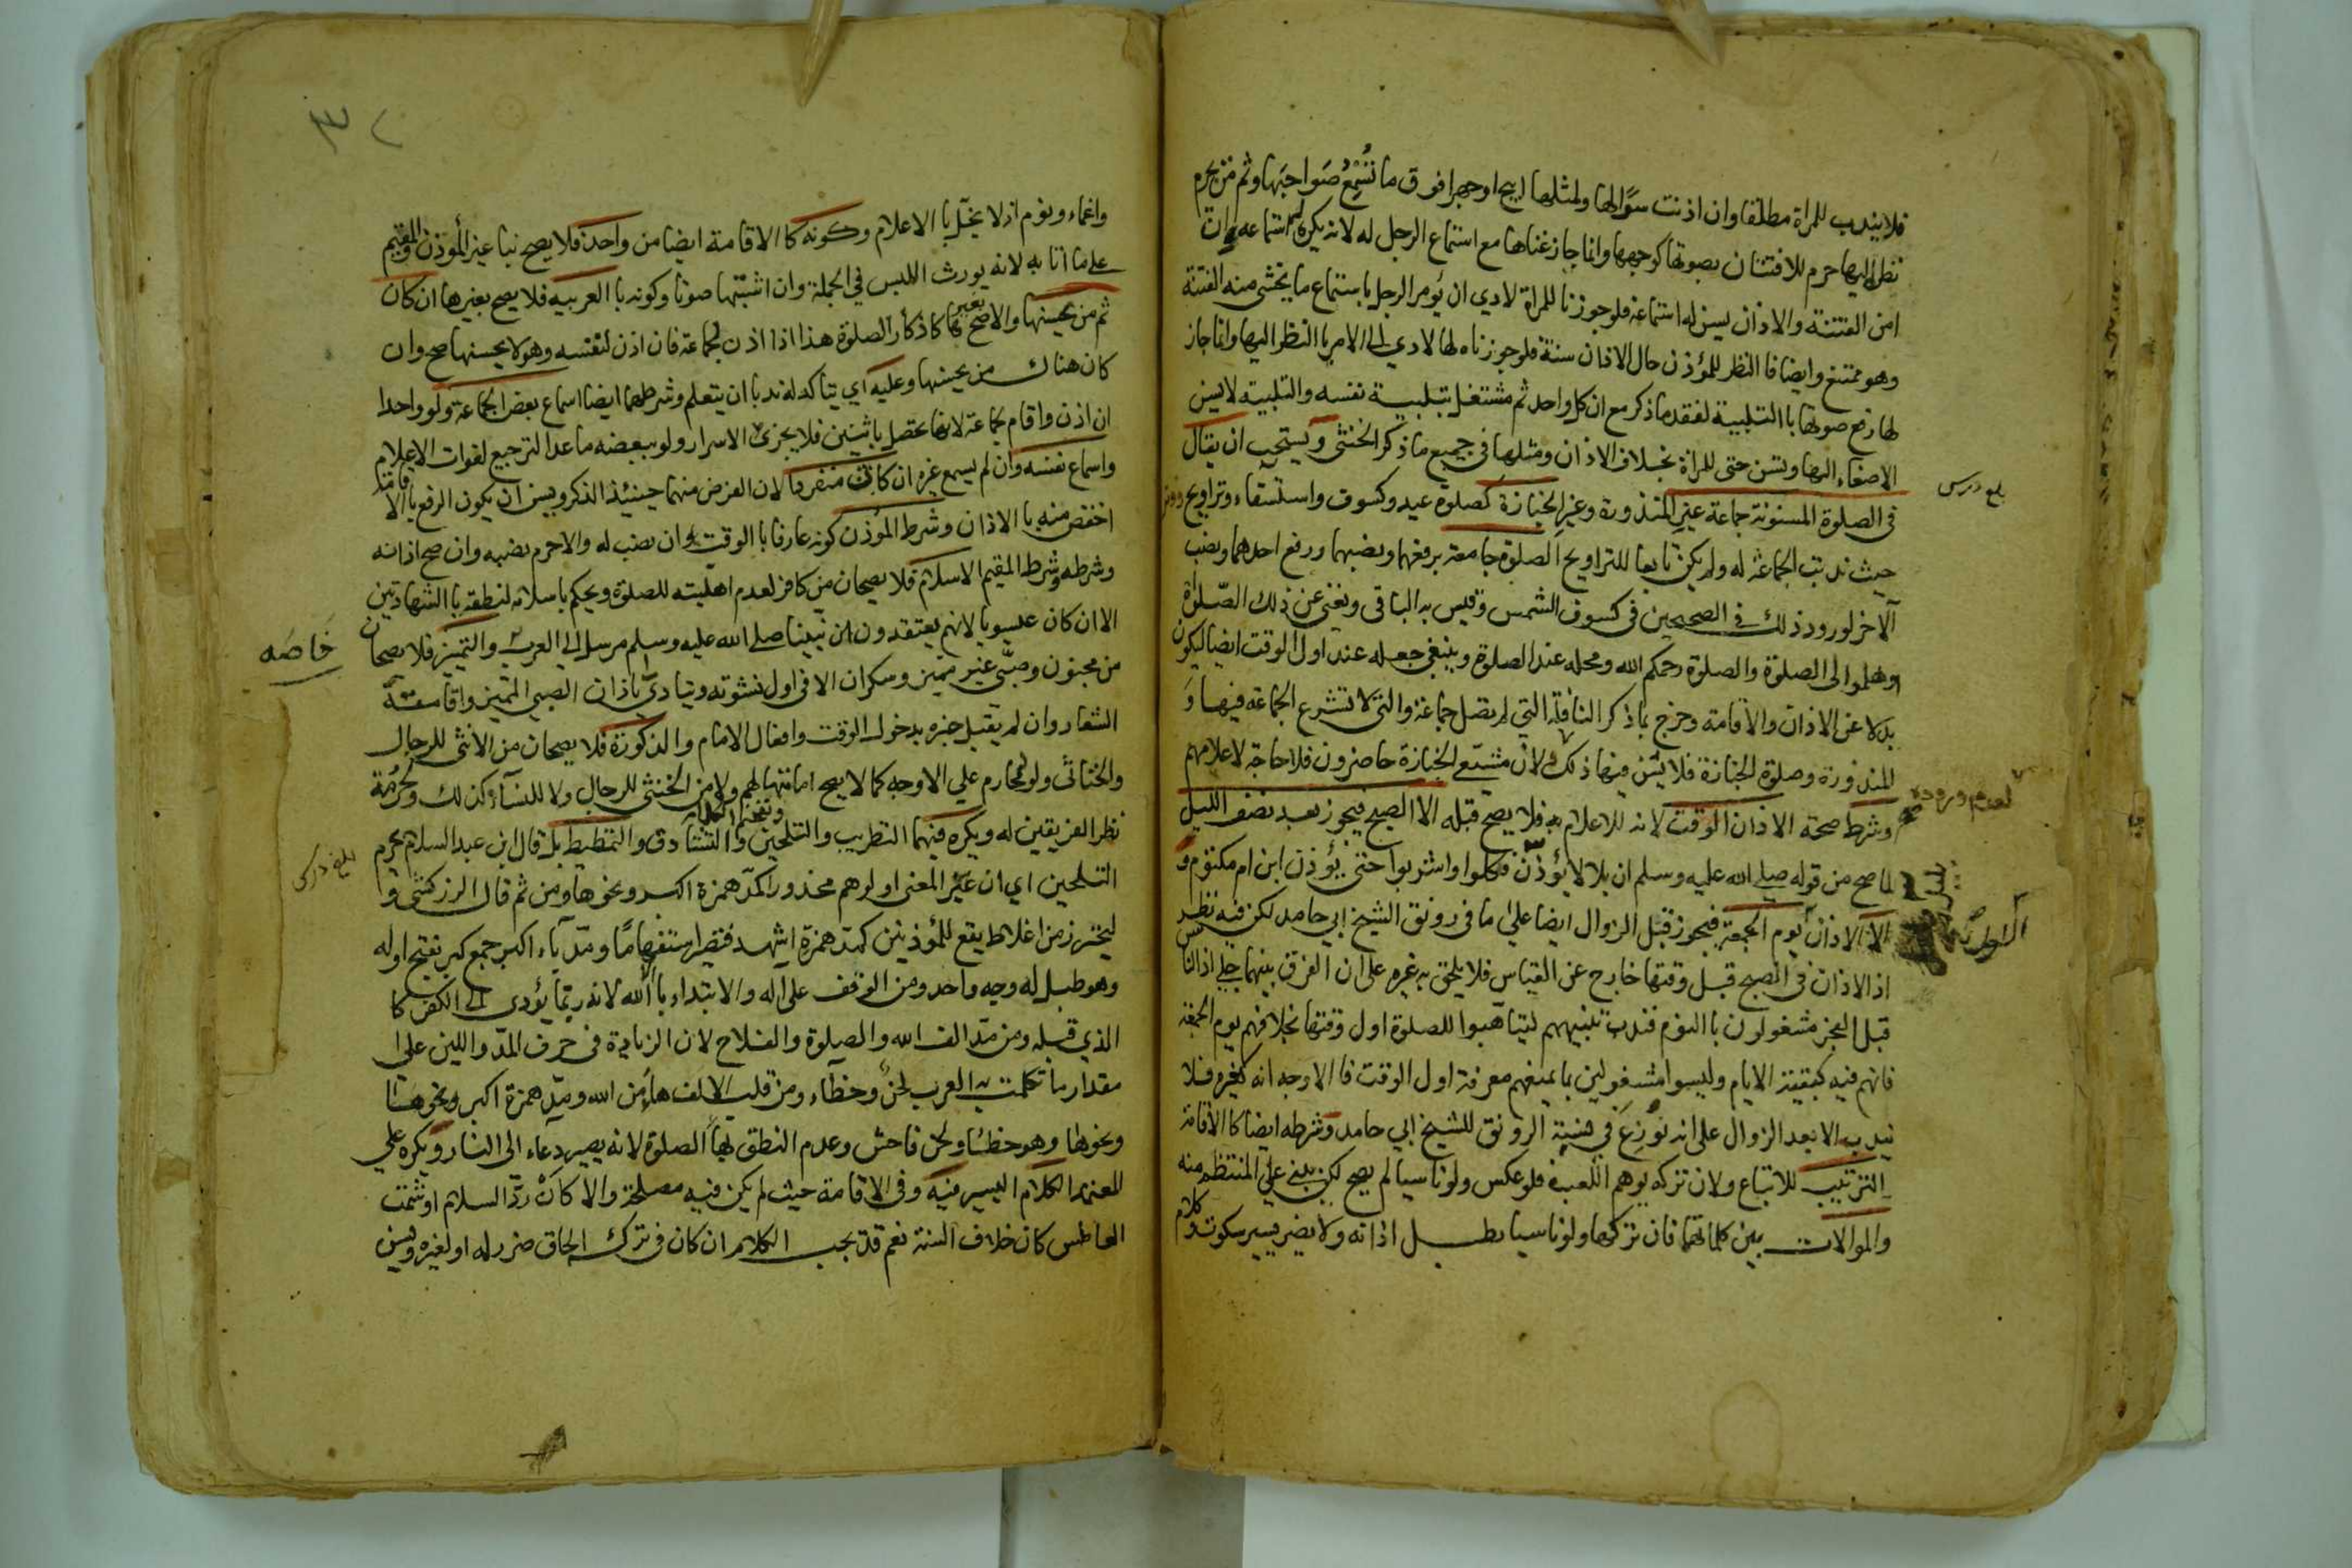 فلا يندب للمراة مطلقا وان اذنت سرا لها ولمثلها ابيح او جهرا فوق ما تُسْمِعُ صَواحِبَها وثم من يحرم
نظره اليها حرم للافتتان بصوتها كوجهها وانما جاز غناها مع استماع الرجل له لانه يكره له استماعه وان
امن الفتنة والاذان يسن له استماعه فلو جوزنا للمراة لادي ان يؤمر الرجل باستماع ما يخشى منه الفتنة
وهو ممتنع وايضا فا النظر للمؤذن حال الاذان سنة فلو جوزناه لها لادي الى الامر با النظر اليها وانما جاز
لها رفع صوتها با التلبية لفقد ما ذكر مع ان كل واحد ثم مشتغل بتلبية نفسه والتلبية لا يسن
الاصغاء اليها وتسن حتى للمراة بخلاف الاذان ومثلها في جميع ما ذكر الخنثى ويستحب ان يقال
في الصلوة المسنونة جماعة غير المنذورة وغير الجنازة كصلوة عيد وكسوف واستسقاء وتراويح ووتر
حيث ندبت الجماعة له ولم يكن تابعا للتراويح الصلوة جامعة برفعهما ونصبهما ورفع احدهما ونصب
الآخر لورود ذلك في الصحيحين في كسوف الشمس وقيس به الباقي ويغني عن ذلك الصلوة
وهلموا الى الصلوة والصلوة رحمكم الله ومحله عند الصلوة وينبغي جعله عند اول الوقت ايضا ليكون
بدلا عن الاذان والاقامة وخرج بما ذكر النافلة التي لم تصل جماعة والتي لا تشرع الجماعة فيها و
المنذورة وصلوة الجنازة فلا يسن فيها ذلك ولان مشيعي الجنازة حاضرون فلا حاجة لاعلامهم
وشرط صحة الاذان الوقت لانه للاعلام به فلا يصح قبله الا الصبح فيجوز بعد نصف الليل
لما صح من قوله صلى الله عليه وسلم ان بلالا يؤذن فكلوا واشربوا حتى يؤذن ابن ام مكتوم و
الا الاذان يوم الجمعة فيجوز قبل الزوال ايضا على ما في رونق الشيخ ابي حامد لكن فيه نظر
اذ الاذان في الصبح قبل وقتها خارج عن القياس فلا يلحق به غيره على ان الفرق بينهما جلي اذ الناس
قبل الفجر مشغولون با النوم فندب تنبيههم ليتاهبوا للصلوة اول وقتها بخلافهم يوم الجمعة
فانهم فيه كبقية الايام وليسوا مشغولين بما يمنعهم معرفة اول الوقت فا الاوجه انه كغيره فلا
يندب الا بعد الزوال على انه نُوزِعَ في نسبة الرونق للشيخ ابي حامد وشرطه ايضا كا الاقامة
الترتيب للاتباع ولان تركه يوهم اللعب فلو عكس ولو ناسيا لم يصح لكن يبني على المنتظم منه
والموالات بين كلماتهما فان تركها ولو ناسيا بطل اذانه ولا يضر يسير سكوت وكلام
بلغ درس
لعدم وروده صح
واغماء ونوم اذ لا يخل با الاعلام وكونه كا الاقامة ايضا من واحد فلا يصح بنا غير المؤذن والمقيم
على ما اتا به لانه يورث اللبس في الجملة وان اشبتها صوتا وكونه با العربيه فلا يصح بغيرها ان كان
ثم من يحسنها والا صح بغيرها كاذكار الصلوة هذا اذا اذن لجماعة فان اذن لنفسه وهو لا يحسنها صح وان
كان هناك من يحسنها وعليه اي يتاكد له ندبا ان يتعلم وشرطهما ايضا اسماع بعض الجماعة ولو واحدا
ان اذن واقام لجماعة لانها تحصل باثنين فلا يجزئ الاسرار ولو ببعضه ماعدا الترجيع لفوات الاعلام
واسماع نفسه وان لم يسمع غيره ان كان منفردا لان الغرض منهما حينئذ الذكر ويسن ان يكون الرفع با الاقامة
اخفض منه با الاذان وشرط المؤذن كونه عارفا با الوقت ان نصب له والا حرم نصبه وان صح اذانه
وشرطه وشرط المقيم الاسلام فلا يصحان من كافر لعدم اهليته للصلوة ويحكم باسلامه لنطقه با الشهادتين
الا ان كان عيسويا لانهم يعتقدون ان نبينا صلى الله عليه وسلم مرسل الى العرب والتميز فلا يصحان
من مجنون وصبي غير مميز وسكران الا في اول نشوته ويتادى باذان الصبي المميز واقامته
الشعار وان لم يقبل خبره بدخول الوقت وافعال الامام والذكورة فلا يصحان من الانثى للرجال
والخناثى ولو لمحارم علي الاوجه كما لا يصح امامتها لهم ولا من الخنثى للرجال ولا للنسآء كذلك ولحرمة
نظر الفريقين له ويكره فيهما التطريب والتلحين والتشادق والتمطيط بل قال ابن عبد السلام يحرم
التلحين اي ان غير المعنى او اوهم محذورا كمد همزة اكبر ونحوها ومن ثم قال الزركشي و
ليحترز من اغلاط يقع للمؤذنين كمد همزة اشهد فتصير استفهاما ومد بآء اكبر جمع كبر بفتح اوله
وهو طبل له وجه واحد ومن الوقف على اله والابتداء با الله لانه ربما يؤدى الى الكفر كا
الذي قبله ومن مد الف الله والصلوة والفلاح لان الزيادة في حرف المد واللين على
مقدار ما تكلمت به العرب لحن وخطآء ومن قلب الالف هاء من الله ومد همزة اكبر ونحوها
ونحوها وهو خطا ولحن فاحش وعدم النطق بهاء الصلوة لانه يصير دعاء الى النار ويكره علي
المعتمد الكلام اليسير فيه وفي الاقامة حيث لم يكن فيه مصلحة والا كان ردّ السلام او شمت
العاطس كان خلاف السنة نعم قد يجب الكلام ان كان في ترك الحاق ضرر له او لغيره ويسن
خاصَه
بلغ درس